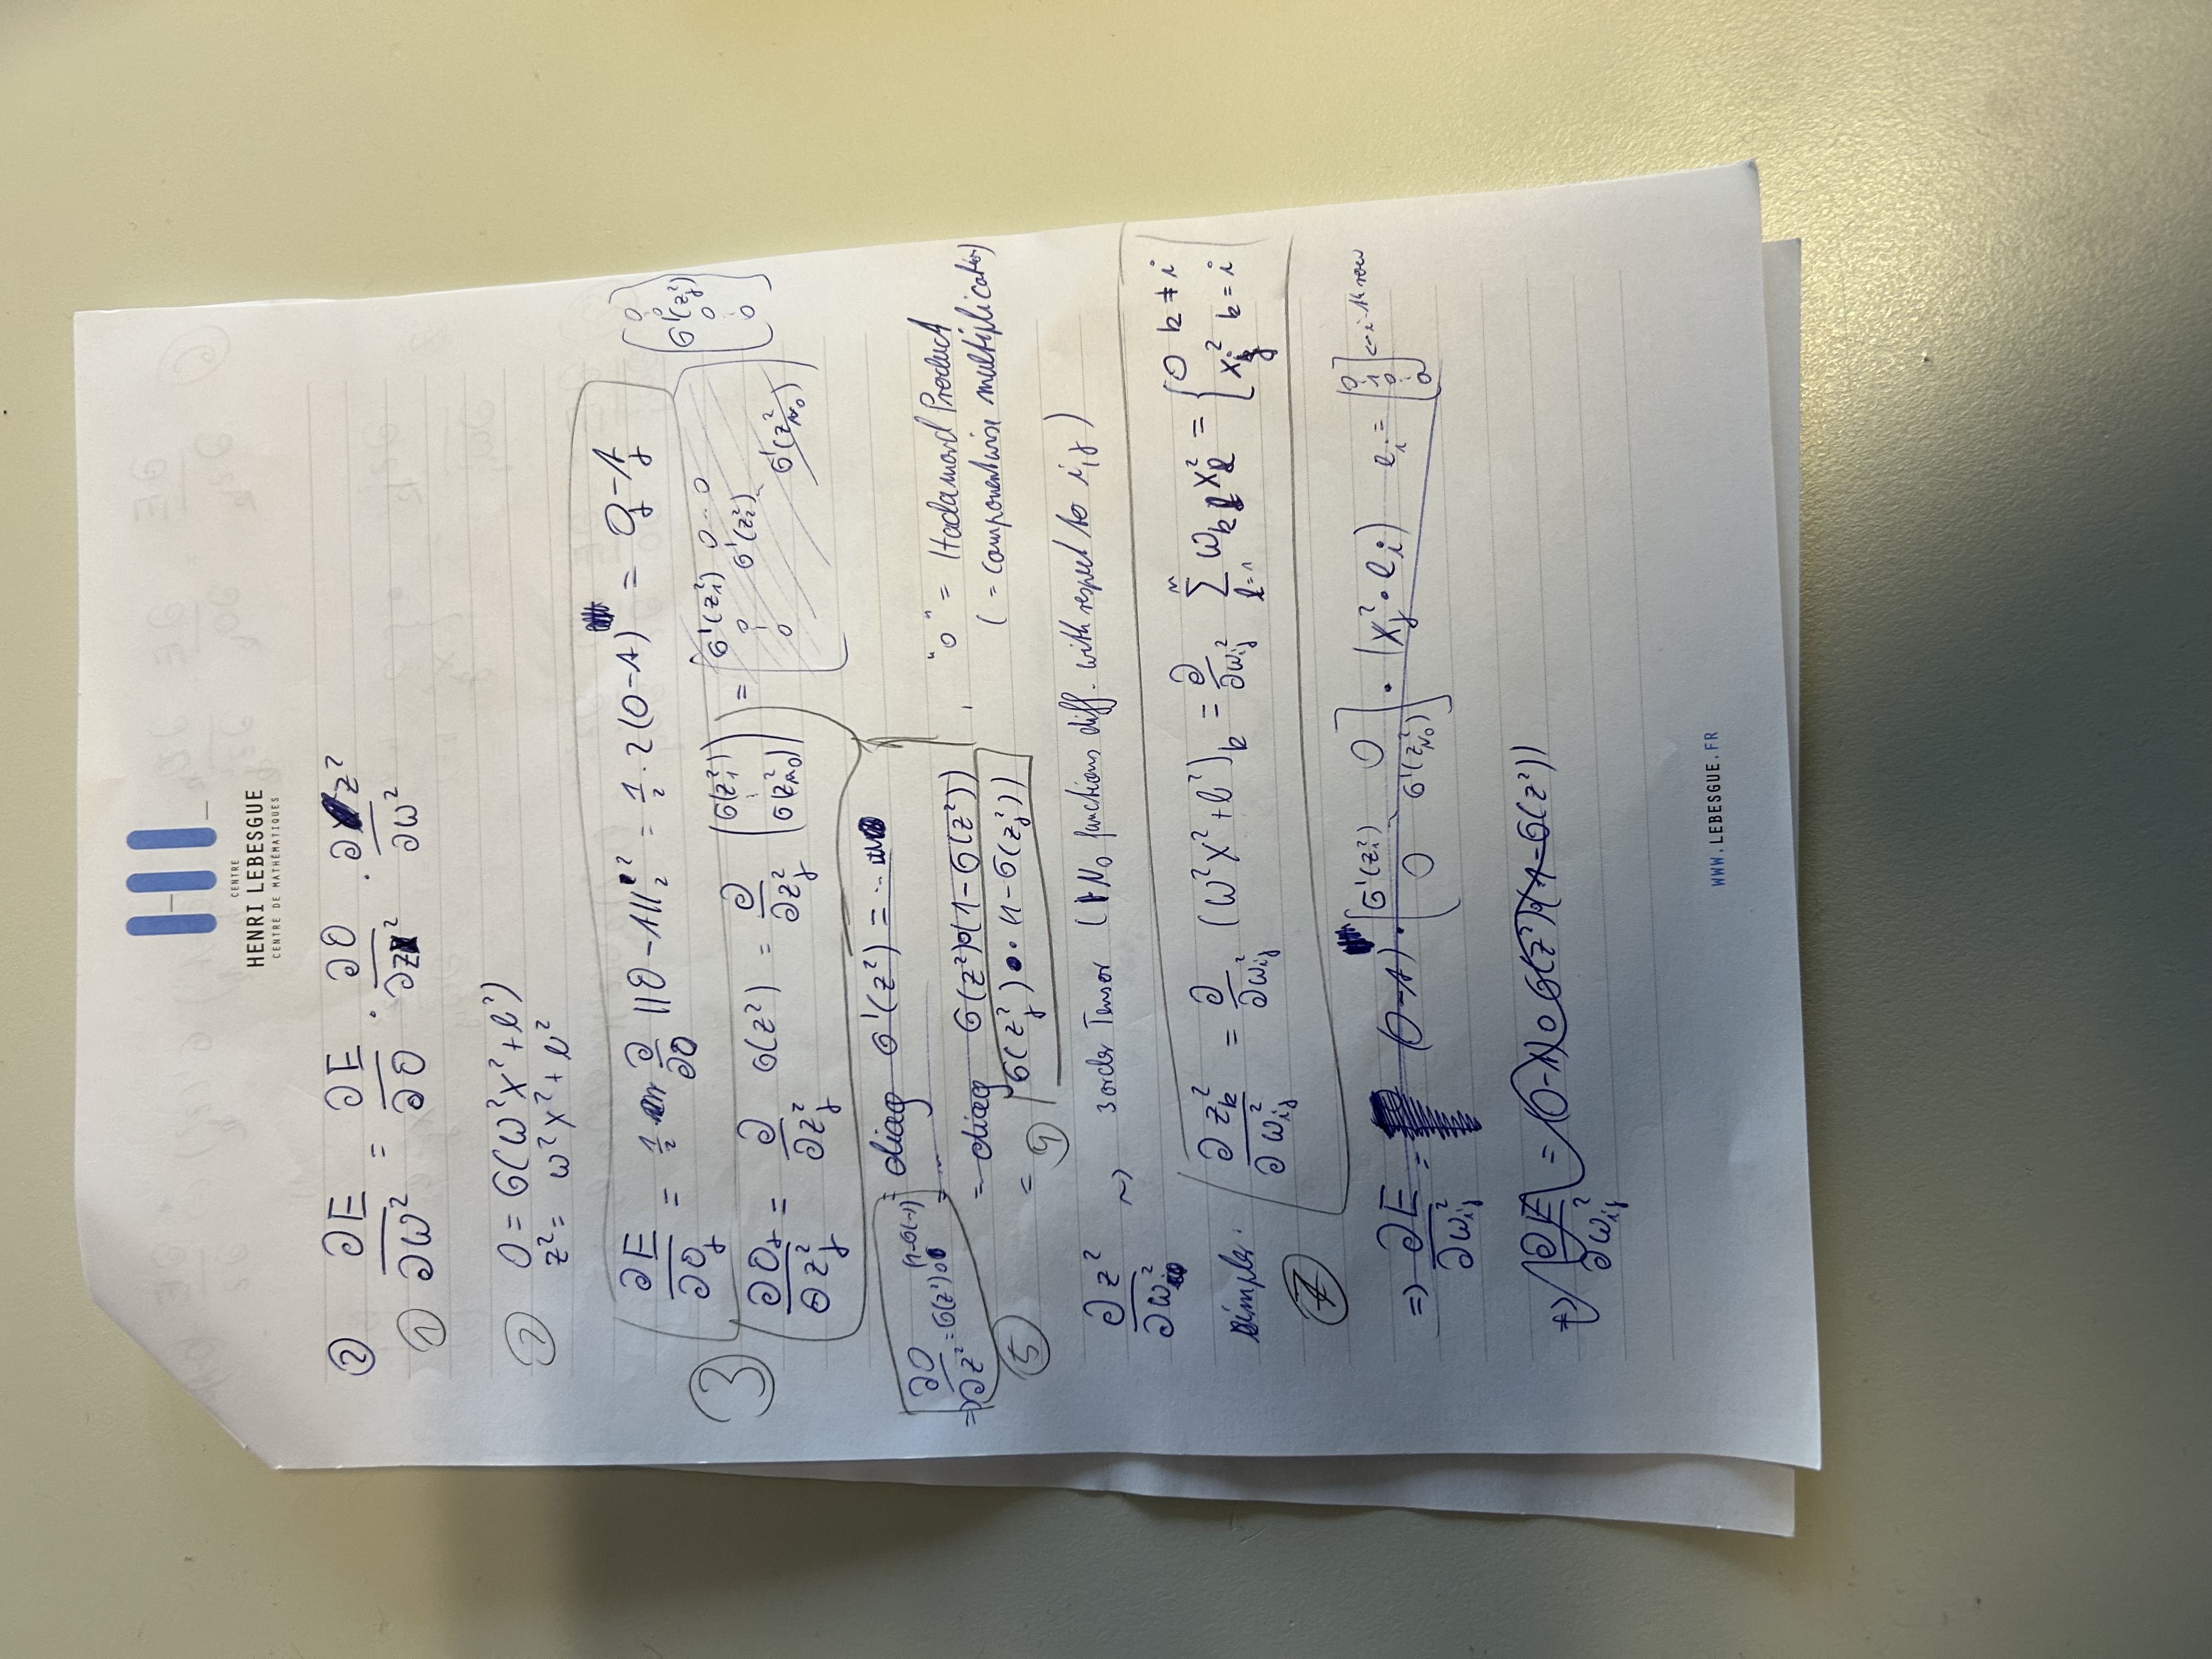 CENTRE
HENRI LEBESGUE
CENTRE DE MATHÉMATIQUES
② ∂E/∂ω² = ∂E/∂O · ∂O/∂z² · ∂z²/∂ω²
①
② O = σ(ω²x² + b²)
z² = ω²x² + b²
∂E/∂O_j = 1/2 ∂/∂O ||O - A||₂² = 1/2 · 2(O - A) = O_j - A_j
③ ∂O_j/∂z_j² = ∂/∂z_j² σ(z²) = ∂/∂z_j² (σ(z₁²) ⋮ σ(z²_{N₀})) = (σ'(z₁²) 0 ·· 0 0 σ'(z₂²) 0 σ'(z²_{N₀})) (0 0 σ'(z_j²) 0 ⋮ 0)
= diag σ'(z²) = ···
⇒ ∂O/∂z² = σ(z²)∘(1-σ(-)) = ···
= diag σ(z²)∘(1 - σ(z²)) , "∘" = Hadamard Product
⑤ = ④ σ(z_j²) · (1 - σ(z_j²)) ( = componentwise multiplication)
∂z²/∂ω² ⇝ 3 order Tensor (N₀ functions diff. with respect to i,j)
Simpler. ∂z_k²/∂ω_ij² = ∂/∂ω_ij² (ω²x² + b²)_k = ∂/∂ω_ij² Σ_{l=1}^n ω_kl x_l² = { 0 k ≠ i x_j² k = i
⑦
⇒ ∂E/∂ω_ij² = (O - A) · [σ'(z₁²) 0 0 σ'(z²_{N₀})] · (x_j² · e_i) e_i = [0 1 0 ⋮ 0] ← i-th row
⇒ ∂E/∂ω_ij² = (O - A) ∘ σ(z²)∘(1 - σ(z²))
WWW.LEBESGUE.FR